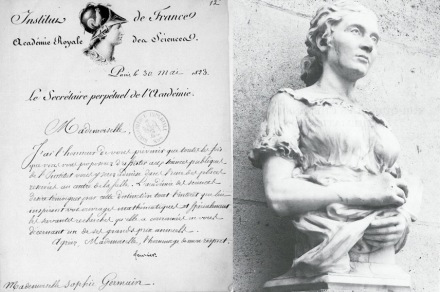 12
Institut de France
Académie Royale des Sciences
Paris, le 30 mai 1823.
Le Secrétaire perpétuel de l'Académie.
Mademoiselle,
J'ai l'honneur de vous prévenir que toutes les fois
que vous vous proposerez d'assister aux séances publiques
de l'Institut vous y serez admise dans l'une des places
réservées au centre de la salle. L'académie des sciences
désire témoigner par cette distinction tout l'intérêt que lui
inspirent vos ouvrages mathématiques et spécialement
les savantes recherches qu'elle a couronnées en vous
décernant un de ses grands prix annuels.
Agréez, Mademoiselle, l'hommage de mon respect.
Fourier.
Mademoiselle Sophie Germain.